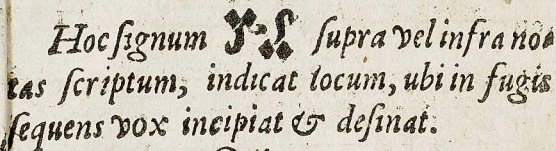 Hoc ſignum :𝄋: ſupra vel infra no-
tas ſcriptum, indicat locum, ubi in fugis
ſequens vox incipiat & deſinat.